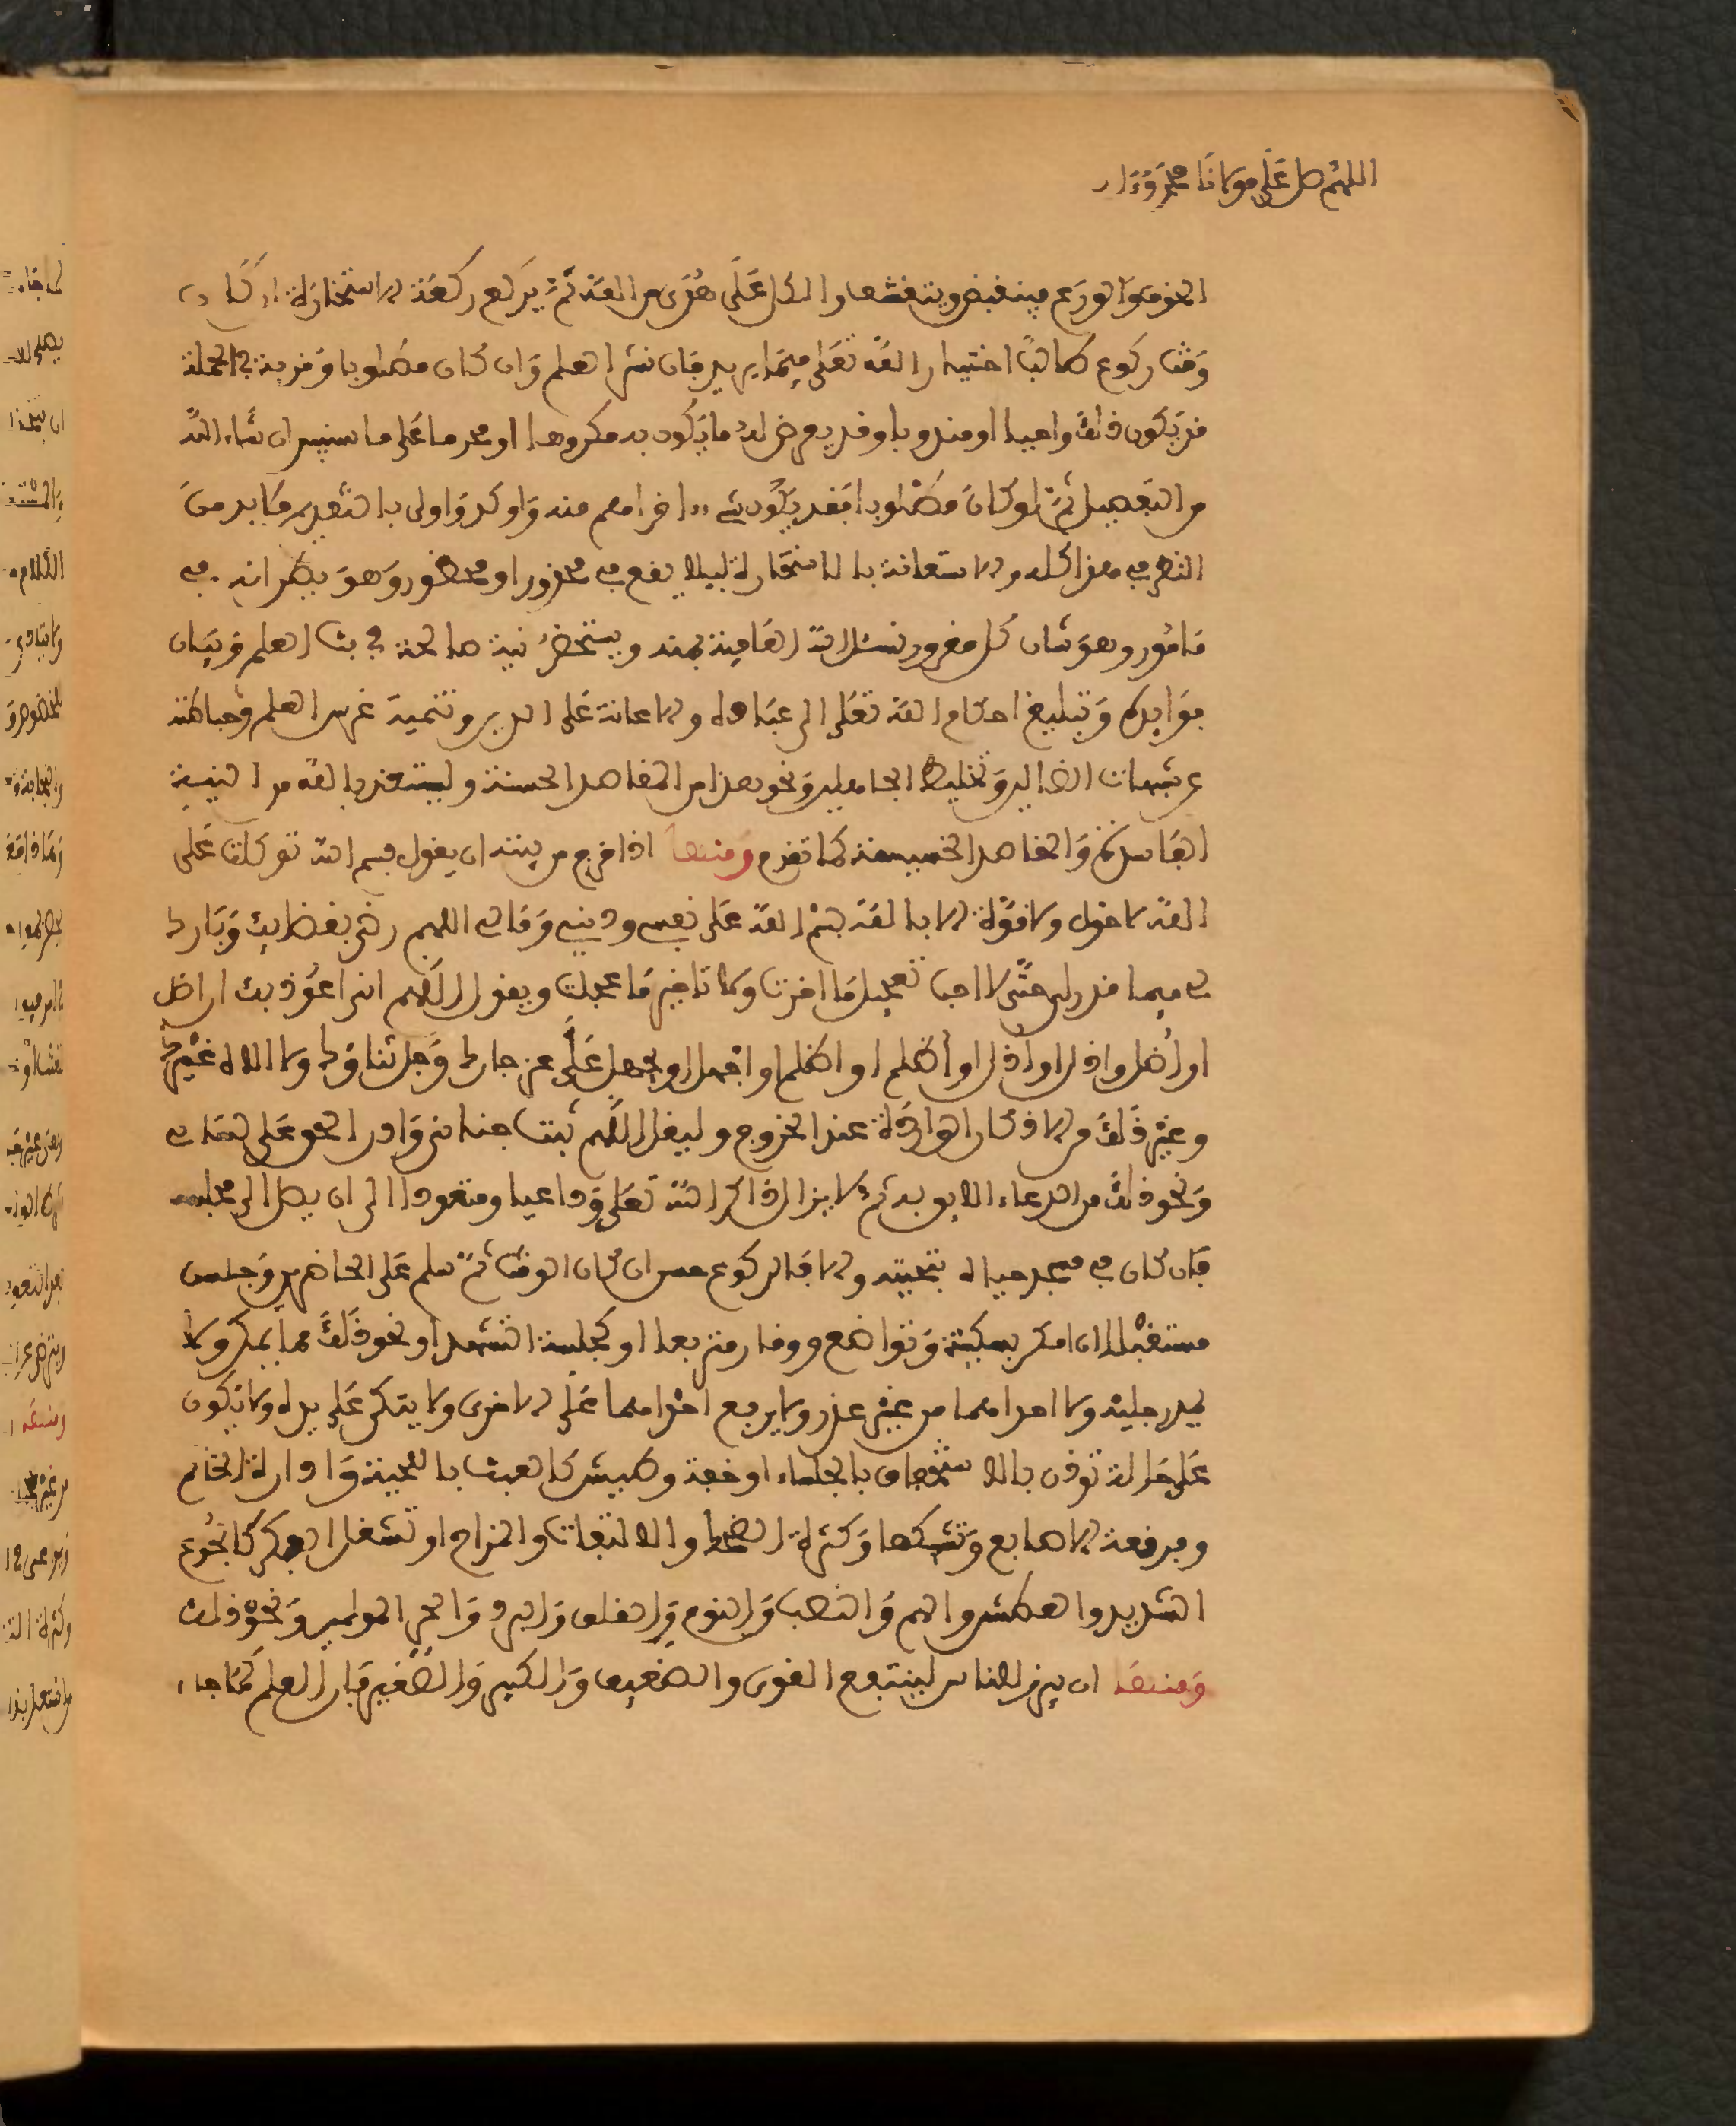 اللهم صل على مولانا محمد وءال
الخوف والورع فينقبض ويتقشف والكل على هدى من الله ثم يركع ركعة الاستخارة ان كان
وقت ركوع طالبا اختيار الله تعلى فيما يريد فان نشر العلم وان كان مطلوبا وقربة في الجملة
قد يكون ذلك واجبا او مندوبا وقد يعرض له ما يكون به مكروها او محرما على ما سنبين ان شاء الله
من التفصيل ثم لو كان مطلوبا فقد يكون شيء ءاخر اهم منه واوكد واولى بالتقديم فلابد من
النظر في هذا كله والاستعانة بالاستخارة ليلا يقع في محذور او محظور وهو يظن انه في
مامور وهو شان كل مغرور نسئل الله العافية بمنه ويستحضر نية صالحة في بث العلم وبيان
فوايده وتبليغ احكام الله تعلى الى عباده والاعانة على الدين وتنمية غرس العلم وحياطته
عن شبهات الضالين وتخليط الجاهلين ونحو هذا من المقاصد الحسنة وليستعذ بالله من النية
الفاسدة والمقاصد الخسيسة كما تقدم ومنها اذا خرج من بيته ان يقول بسم الله توكلت على
الله لا حول ولا قوة الا بالله بسم الله على نفسي وديني ومالي اللهم رضني بقضايك وبارك
لي فيما قدر لي حتى لا احب تعجيل ما اخرت ولا تاخير ما عجلت ويقول اللهم اني اعوذ بك ان اضل
او اضل او ازل او ازل او اظلم او اظلم او اجهل او يجهل علي عز جارك وجل ثناؤك ولا اله غيرك
وغير ذلك من الاذكار الواردة عند الخروج وليقل اللهم ثبت جناني وادر الحق على لساني
ونحو ذلك من الدعاء اللايق به ثم لا يزال ذاكر الله تعلى وداعيا ومتعوذا الى ان يصل الى مجلسه
فان كان في مسجد حياه بتحيته والا فالركوع حسن ان كان الوقت ثم سلم على الحاضرين وجلس
مستقبلا ان امكن بسكينة وتواضع ووقار متربعا او كجلسة التشهد او نحو ذلك مما يمكن ولا
يمد رجليه ولا احداهما من غير عذر ولا يرفع احداهما على الاخرى ولا يتكئ على يده ولا يكون
على حالة توذن بالاستخفاف بالجلساء او خفة وطيش كالعبث باللحية وادارة الخاتم
وفرقعة الاصابع وتشبكها وكثرة الضحك والالتفات والمزاح او تشغل الفكر كالجوع
الشديد والعطش والهم والغضب والنوم والقلق والبرد والحر المولمين ونحو ذلك
ومنها ان يبرز للناس لينتفع القوي والضعيف والكبير والصغير فان العلم كما جاء